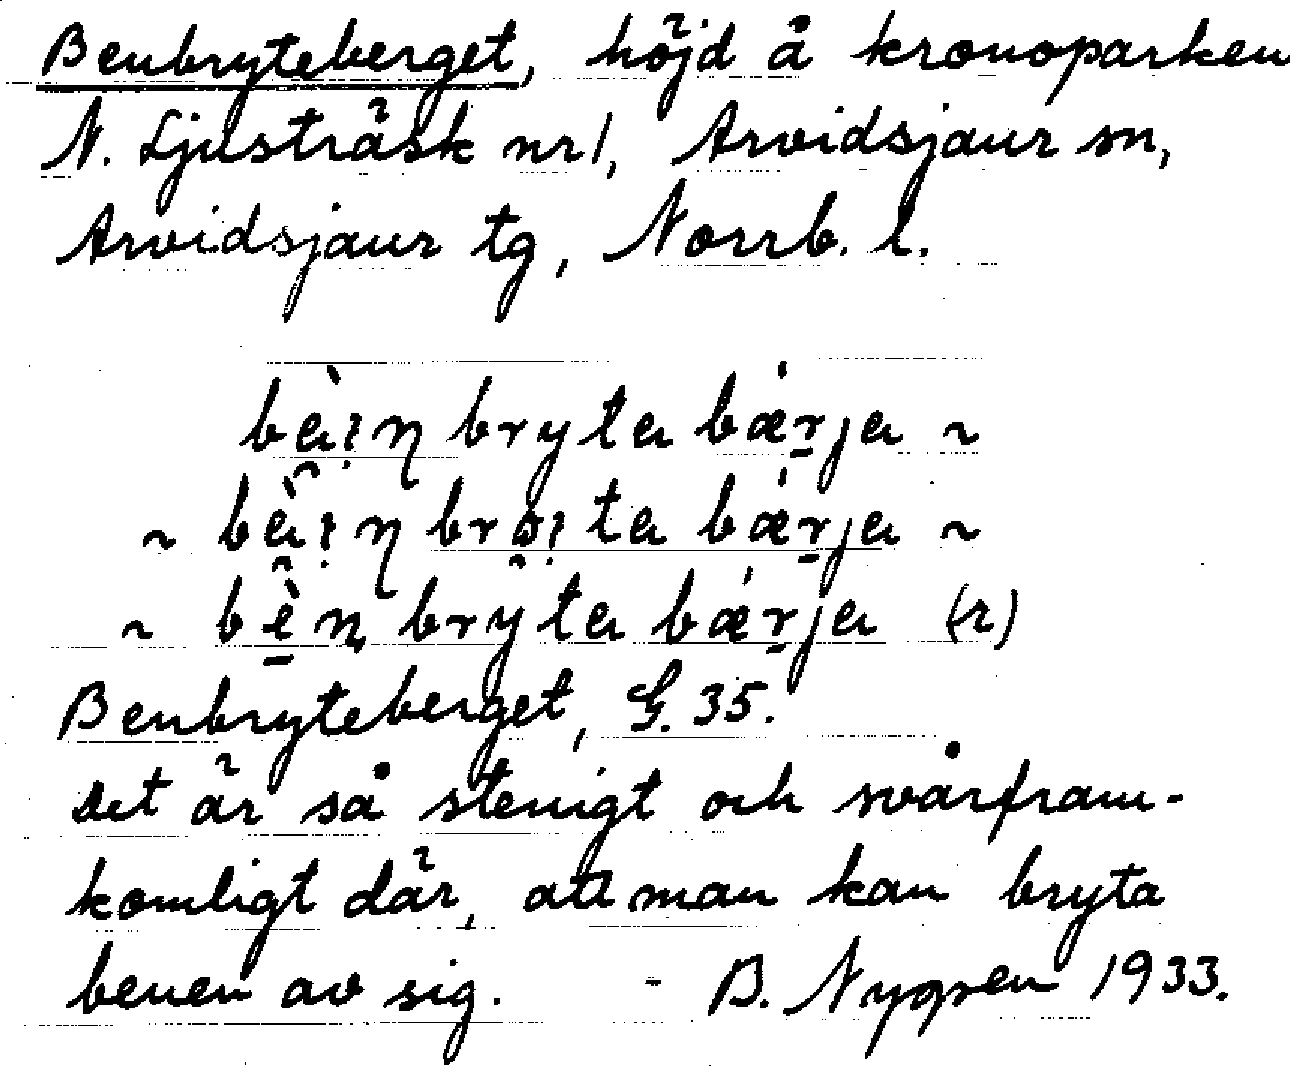 Benbryteberget, höjd å kronoparken
N. Ljusträsk nr 1, Arvidsjaur sn,
Arvidsjaur tg, Norrb. l.
bryta bǽrja ~
~ bǽrja ~
~ bryta bǽrja (r)
Benbryteberget, G. 35.
det är så stenigt och svårfram-
komligt där, att man kan bryta
benen av sig. - B. Nygren 1933.